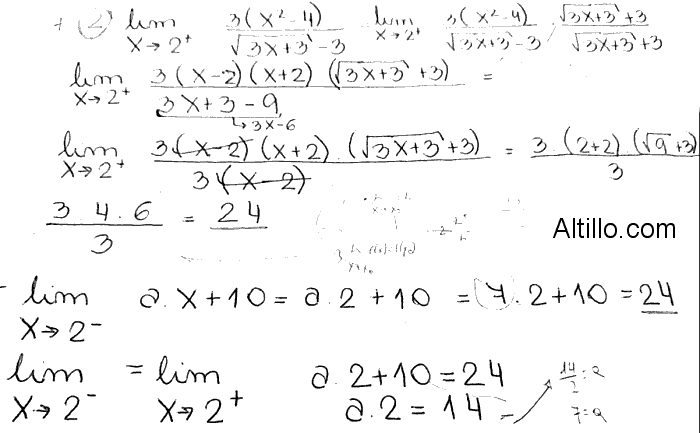 + (2) lim x→2⁺ 3(x²-4) / √(3x+3) - 3 lim x→2⁺ 3(x²-4) / √(3x+3) - 3 · √(3x+3) + 3 / √(3x+3) + 3
lim x→2⁺ 3(x-2)(x+2)(√(3x+3) + 3) / 3x+3-9 =
↳ 3x-6
lim x→2⁺ 3(x-2)(x+2).(√(3x+3) + 3) / 3.(x-2) = 3.(2+2).(√9+3) / 3
3.4.6 / 3 = 24
Altillo.com
lim x→2⁻ a.x+10 = a.2+10 = (7).2+10 = 24
lim x→2⁻ = lim x→2⁺ a.2+10 = 24 14/2 = a
a.2 = 14 7 = a